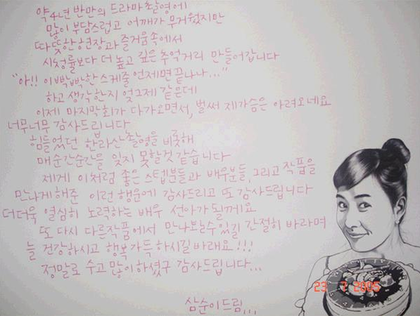 약 4년 반만의 드라마 촬영에
많이 부담스럽고 어깨가 무거웠지만
따뜻한 현장과 즐거움 속에서
시청률보다 더 높고 깊은 추억거리 만들어갑니다
"아!! 이 빡빡한 스케줄 언제면 끝나나..."
하고 생각한지 엊그제 같은데
이제 마지막회가 다가오면서, 벌써 제가슴은 아려오네요
너무너무 감사드립니다
힘들었던 한라산 촬영을 비롯해
매순간순간을 잊지 못할것 같습니다
제게 이처럼 좋은 스텝분들과 배우분들, 그리고 작품을
만나게해준 이런 행운에 감사드리고 또 감사드립니다
더더욱 열심히 노력하는 배우 선아가 될께요
또 다시 다른작품에서 만나뵐수 있길 간절히 바라며
늘 건강하시고 행복 가득하시길 바래요!!!
정말로 수고 많이하셨구 감사드립니다...
삼순이드림...
23 7 2005